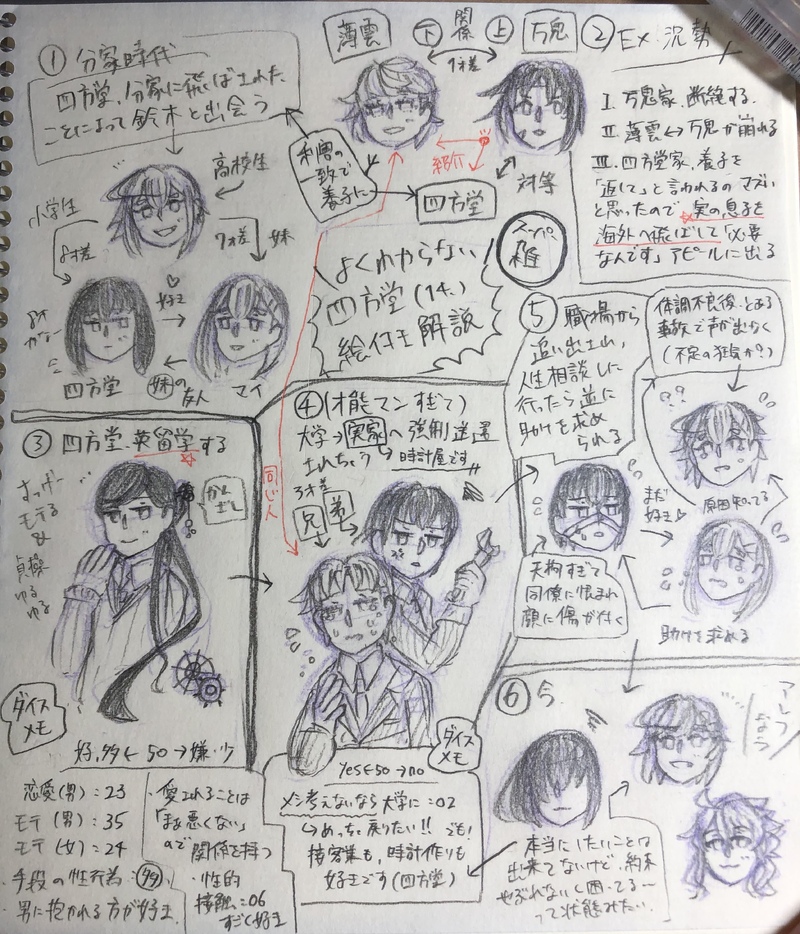 ① 分家時代
四方堂、分家に飛ばされた
ことによって鈴木と出会う
高校生
小学生
8才差
7才差
妹
好き
四方堂
妹の友人
マイ
薄雲
下
関係
上
万鬼
7才差
紹介
利害の
一致で
養子に
四方堂
対等
② Ex 沢勢
Ⅰ. 万鬼家、断絶する.
Ⅱ. 薄雲↔万鬼が崩れる
Ⅲ. 四方堂家、養子を
「返して」と言われるのマズい
と思ったので 実の息子を
海外へ飛ばして「必要
なんです」アピールに出る
スーパー
雑
よくわからない
四方堂(14.)
絵付き解説
③ 四方堂、英留学する
すっげー
モテる
&
貞操
ゆる
ゆる
かんざし
ダイス
メモ
好、多← 50 →嫌・少
恋愛(男):23
モテ(男):35
モテ(女):24
・手段の性行為:99
・男に抱かれる方が好き.
・愛されることは
「まぁ悪くない」
ので
関係を持つ
・性的
接触:06
すごく好き
同じ人
④ (才能マンすぎて)
大学→実家へ強制送還
されちゃう
時計屋です
3才差
兄
弟
ダイス
メモ
yes←50→no
メン考えないなら大学に:02
↳めっちゃ戻りたい!! でも!
接客業も、時計作りも
好きです(四方堂)
⑤ 職場から
追い出され、
人生相談しに
行ったら逆に
助けを求め
られる
体調不良後、とある
事故で声が出なく
(不定の狂気か?)
??
原因知ってる
まだ
好き
天狗すぎて
同僚に恨まれ
顔に傷が付く
助けを求める
⑥ 今
本当にしたいことは
出来てないけど、約束
やぶれないし困ってる〜
って状態みたい.